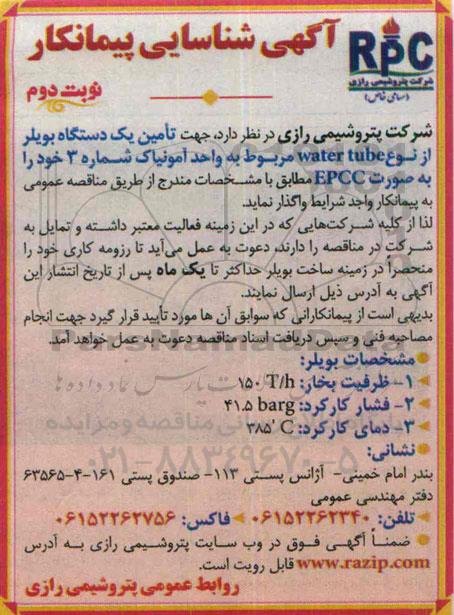 آگهی شناسایی پیمانکار
RPC
شرکت پتروشیمی رازی
(سهامی خاص)
نوبت دوم
شرکت پتروشیمی رازی در نظر دارد، جهت تأمین یک دستگاه بویلر
از نوع water tube مربوط به واحد آمونیاک شماره ۳ خود را
به صورت EPCC مطابق با مشخصات مندرج از طریق مناقصه عمومی
به پیمانکار واجد شرایط واگذار نماید.
لذا از کلیه شرکت‌هایی که در این زمینه فعالیت معتبر داشته و تمایل به
شرکت در مناقصه را دارند، دعوت به عمل می‌آید تا رزومه کاری خود را
منحصراً در زمینه ساخت بویلر حداکثر تا یک ماه پس از تاریخ انتشار این
آگهی به آدرس ذیل ارسال نمایند.
بدیهی است از پیمانکارانی که سوابق آن ها مورد تأیید قرار گیرد جهت انجام
مصاحبه فنی و سپس دریافت اسناد مناقصه دعوت به عمل خواهد آمد.
مشخصات بویلر:
۱- ظرفیت بخار: ۱۵۰ T/h
۲- فشار کارکرد: ۴۱.۵ barg
۳- دمای کارکرد: ۳۸۵' C
۰۲۱-۸۸۳۴۹۶۷۰-۵
نشانی:
بندر امام خمینی- آژانس پستی ۱۱۳- صندوق پستی ۱۶۱-۴-۶۳۵۶۵
دفتر مهندسی عمومی
تلفن: ۰۶۱۵۲۲۶۲۳۴۰ فاکس: ۰۶۱۵۲۲۶۲۷۵۶
ضمناً آگهی فوق در وب سایت پتروشیمی رازی به آدرس
www.razip.com قابل رویت است.
روابط عمومی پتروشیمی رازی